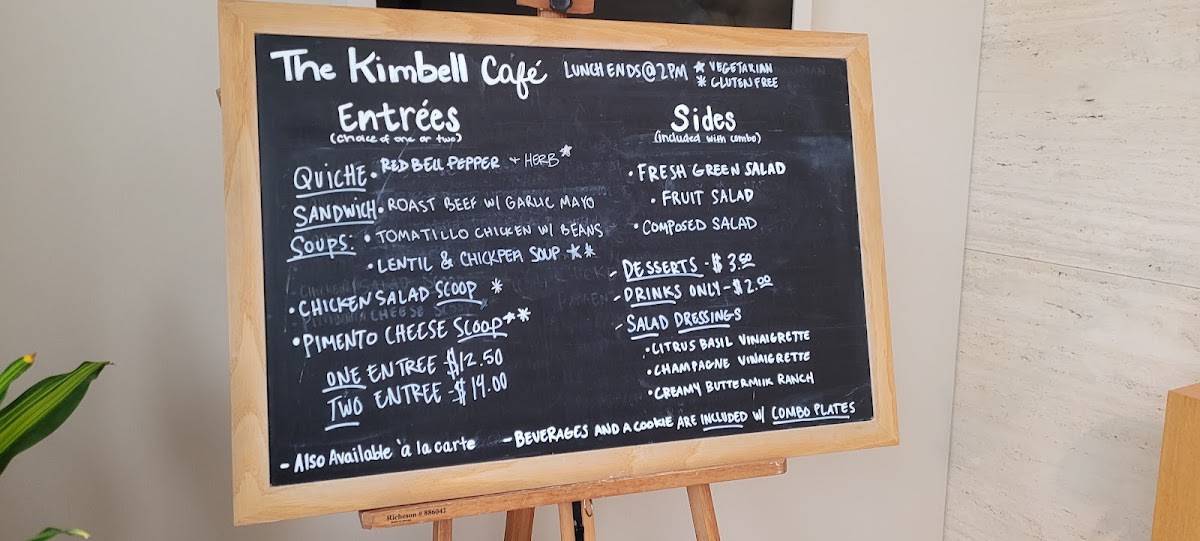 The Kimbell Café LUNCH ENDS@2PM ★ VEGETARIAN
* GLUTEN FREE
Entrées
(choice of one or two)
QUICHE • RED BELL PEPPER + HERB ★
SANDWICH • ROAST BEEF W/ GARLIC MAYO
SOUPS: • TOMATILLO CHICKEN W/ BEANS
• LENTIL & CHICKPEA SOUP ★ *
• CHICKEN SALAD SCOOP *
• PIMENTO CHEESE SCOOP ★ *
ONE ENTREE -$12.50
TWO ENTREE -$14.00
- Also Available à la carte
Sides
(included with combo)
• FRESH GREEN SALAD
• FRUIT SALAD
• COMPOSED SALAD
- DESSERTS -$3.50
- DRINKS ONLY -$2.00
- SALAD DRESSINGS
• CITRUS BASIL VINAIGRETTE
• CHAMPAGNE VINAIGRETTE
• CREAMY BUTTERMIK RANCH
- BEVERAGES AND A COOKIE ARE INCLUDED W/ COMBO PLATES
Richeson # 886042